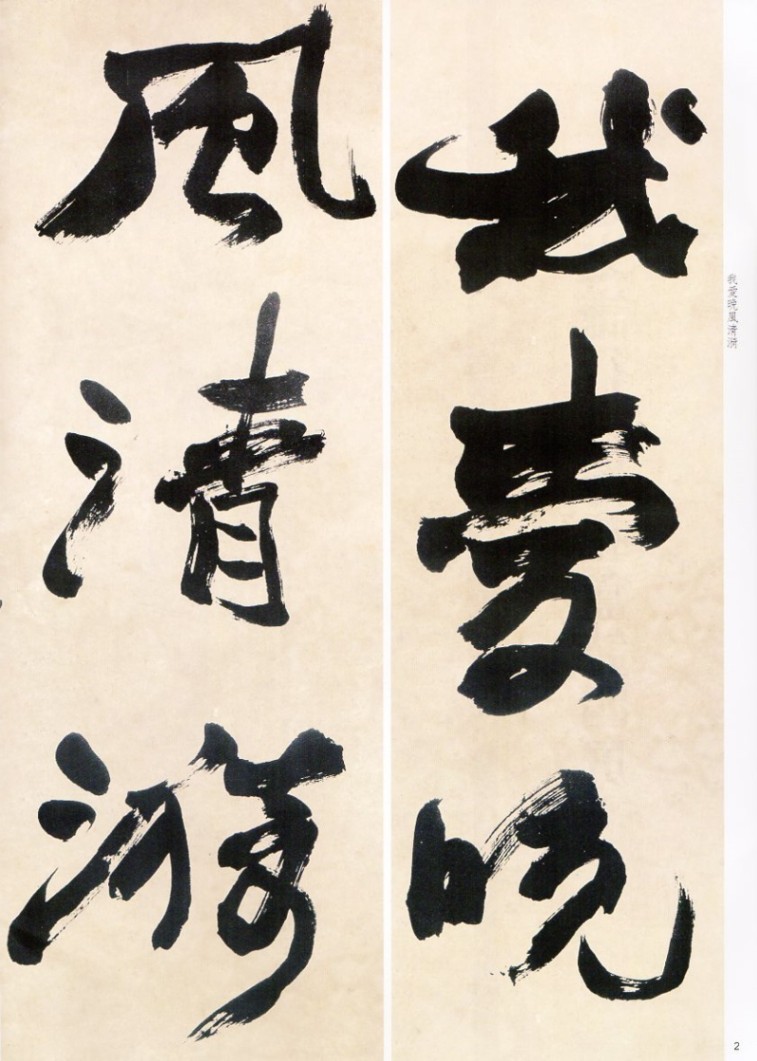 我愛晚
風清漪
我愛晚風清漪
2